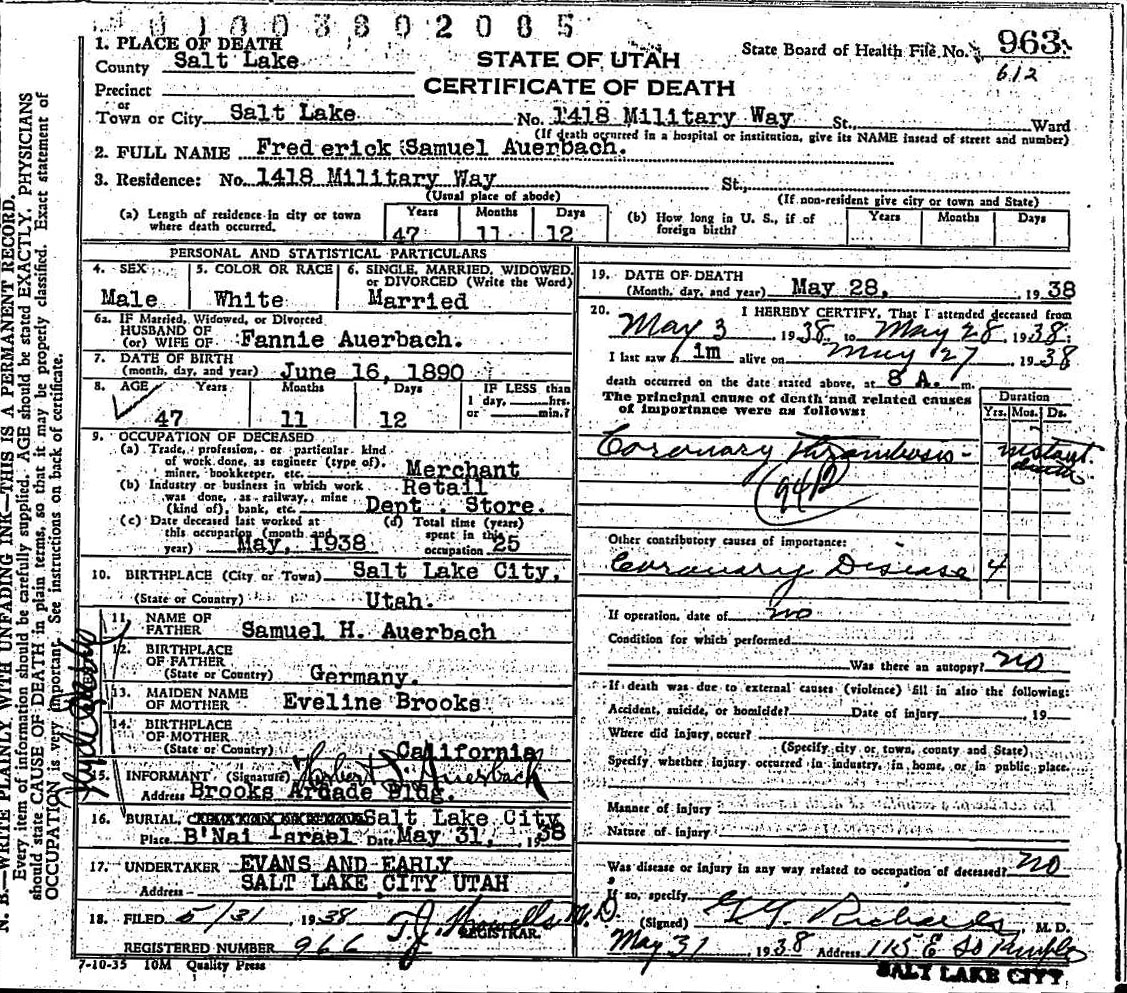 01003802085
1. PLACE OF DEATH
County Salt Lake
STATE OF UTAH
CERTIFICATE OF DEATH
State Board of Health File No. 963
612
Precinct
or
Town or City Salt Lake No. 1418 Military Way St., Ward
(If death occurred in a hospital or institution, give its NAME instead of street and number)
2. FULL NAME Frederick Samuel Auerbach.
3. Residence: No. 1418 Military Way St.,
(Usual place of abode) (If non-resident give city or town and State)
(a) Length of residence in city or town where death occurred. Years 47 Months 11 Days 12
(b) How long in U. S., if of foreign birth? Years Months Days
PERSONAL AND STATISTICAL PARTICULARS
4. SEX Male
5. COLOR OR RACE White
6. SINGLE, MARRIED, WIDOWED, or DIVORCED (Write the Word) Married
6a. IF Married, Widowed, or Divorced
HUSBAND OF
(or) WIFE OF Fannie Auerbach.
7. DATE OF BIRTH
(month, day, and year) June 16, 1890
8. AGE Years Months Days IF LESS than
1 day, hrs.
or min.?
47 11 12
9. OCCUPATION OF DECEASED
(a) Trade, profession, or particular kind
of work done, as engineer (type of),
miner, bookkeeper, etc. Merchant
(b) Industry or business in which work Retail
was done, as railway, mine
(kind of), bank, etc. Dept. Store.
(c) Date deceased last worked at
this occupation (month and
year) May, 1938
(d) Total time (years)
spent in this
occupation 25
10. BIRTHPLACE (City or Town) Salt Lake City,
(State or Country) Utah.
11. NAME OF
FATHER Samuel H. Auerbach
12. BIRTHPLACE
OF FATHER
(State or Country) Germany.
13. MAIDEN NAME
OF MOTHER Eveline Brooks
14. BIRTHPLACE
OF MOTHER
(State or Country) California
15. INFORMANT (Signature) Herbert S. Auerbach
Address Brooks Arcade Bldg.
16. BURIAL, CREMATION OR REMOVAL Salt Lake City
Place B'Nai Israel Date May 31, 1938
17. UNDERTAKER EVANS AND EARLY
Address SALT LAKE CITY UTAH
18. FILED 5/31 1938 T.J. Howells M.D.
REGISTRAR.
REGISTERED NUMBER 966
7-10-35 10M Quality Press
19. DATE OF DEATH
(Month, day, and year) May 28, 1938
20. I HEREBY CERTIFY, That I attended deceased from
May 3 1938 to May 28 1938
I last saw him alive on May 27 1938
death occurred on the date stated above, at 8 A. m.
The principal cause of death and related causes
of importance were as follows:
Duration
Yrs. Mos. Ds.
Coronary Thrombosis - instant death
94B
Other contributory causes of importance:
Coronary Disease 4
If operation, date of no
Condition for which performed
Was there an autopsy? no
If death was due to external causes (violence) fill in also the following:
Accident, suicide, or homicide? Date of injury , 19
Where did injury occur?
(Specify city or town, county and State)
Specify whether injury occurred in industry, in home, or in public place.
Manner of injury
Nature of injury
Was disease or injury in any way related to occupation of deceased? no
If so, specify
(Signed) G.G. Richards, M. D.
May 31 1938 Address 115 E So Temple
SALT LAKE CITY
N. B.—WRITE PLAINLY, WITH UNFADING INK—THIS IS A PERMANENT RECORD.
Every item of information should be carefully supplied. AGE should be stated EXACTLY. PHYSICIANS
should state CAUSE OF DEATH in plain terms, so that it may be properly classified. Exact statement of
OCCUPATION is very important. See instructions on back of certificate.